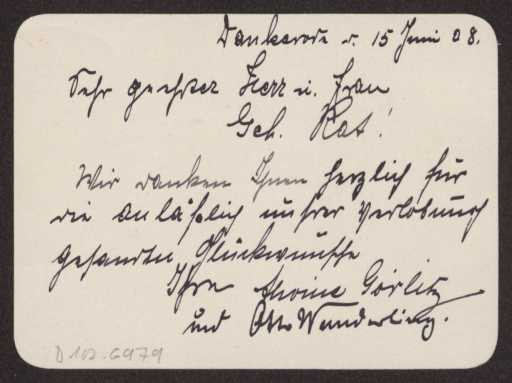 Dankerode d. 15 Juni 08.
Sehr geehrter Herr u. Frau
Geh. Rat!
Wir danken Ihnen herzlich für
die anläßlich unsrer Verlobung
gesandten Glückwünsche
Ihre Görlitz
und Otto Wunderling.
D 102-6979